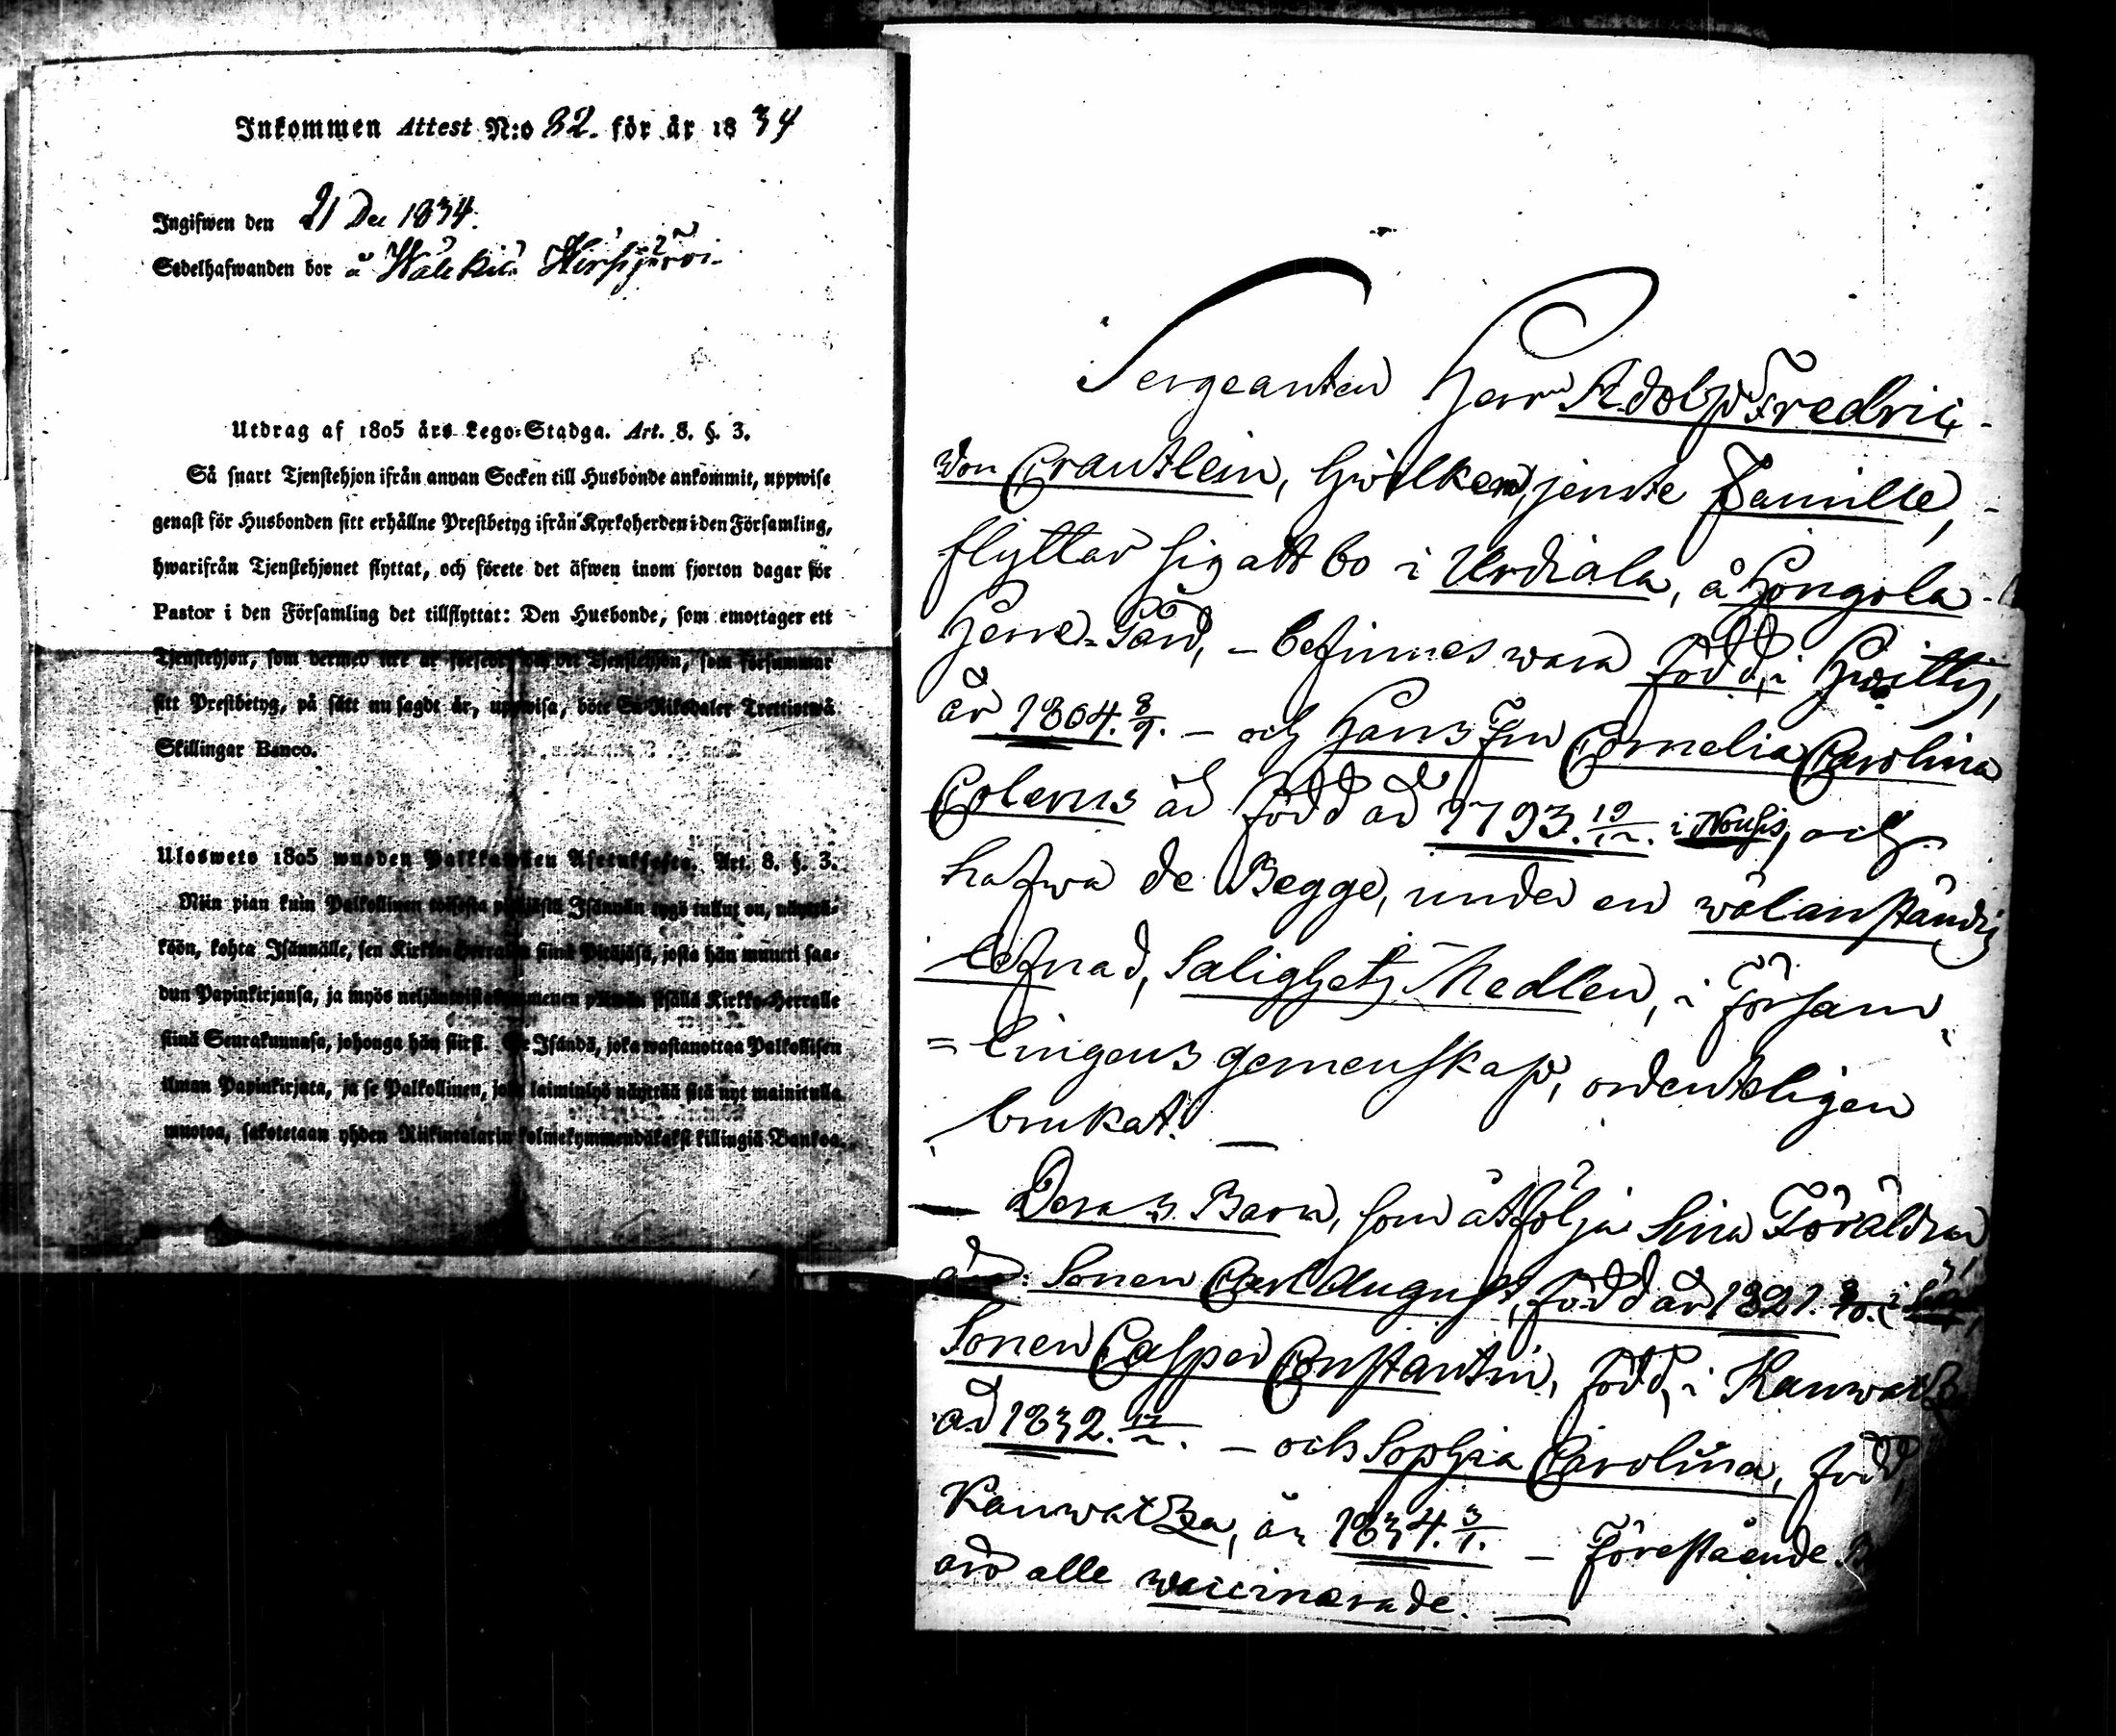 Inkommen Attest N:o 82. för år 1834
Ingifwen den 21 Dec 1834.
Sedelhafwanden bor å Wälkilä Hirsjärvi
Utdrag af 1805 års Lego-Stadga. Art. 8. §. 3.
Så snart Tjenstehjon ifrån annan Socken till Husbonde ankommit, uppwise
genast för Husbonden sitt erhållne Prestbetyg ifrån Kyrkoherden i den Församling,
hwarifrån Tjenstehjonet flyttat, och förete det äfwen inom fjorton dagar för
Pastor i den Församling det tillflyttat: Den Husbonde, som emottager ett
Tjenstehjon, som dermed icke är försedt, och det Tjenstehjon, som försummar
sitt Prestbetyg, på sätt nu sagdt är, uppwisa, böte En Riksdaler Trettiotwå
Skillingar Banco.
Ulosweto 1805 wuoden Palkkawäen Asetuksesta. Art. 8. §. 3.
Niin pian kuin Palkollinen toisesta pitäjästä Isännän tygö tullut on, näyttä-
köön, kohta Isännälle, sen Kirkko-Herralta siinä Pitäjäsä, josta hän muutti saa-
dun Papinkirjansa, ja myös neljäntoistakymmenen päiwän sisällä Kirkko-Herralle
siinä Seurakunnasa, johonga hän siirsi. Se Isändä, joka wastanottaa Palkollisen
ilman Papinkirjata, ja se Palkollinen, joka laiminlyö näyttää sitä nyt mainitulla
muotoa, sakotetaan yhden Riikintalarin kolmekymmendäkaksi killingiä Bankoa.
Sergeanten Herr Adolph Fredric
von Crautlein, hwilken, jemte Famille,
flyttar sig att bo i Urdiala, å Hongola
Herre-Gård, - befinnes wara född i Hwittis,
år 1804. 8/9. - och Hans Fru Cornelia Carolina
Colerus är född år 1793. 19/12. i Nousis, och
hafwa de Begge, under en wälanständig
lefnad, Salighets Medlen, i Församl
=lingens gemenskap, ordenteligen
brukat. —
— Deras Barn, som åtfölja sina Föräldrar,
är: Sonen Carl August, född år 1821.
Sonen Casper Constantin, född i Kauwatza
år 1832. 12/2. - och Sophia Carolina, född
Kauwatza, år 1834. 3/1. - Förestående
äro alle waccinerade. —